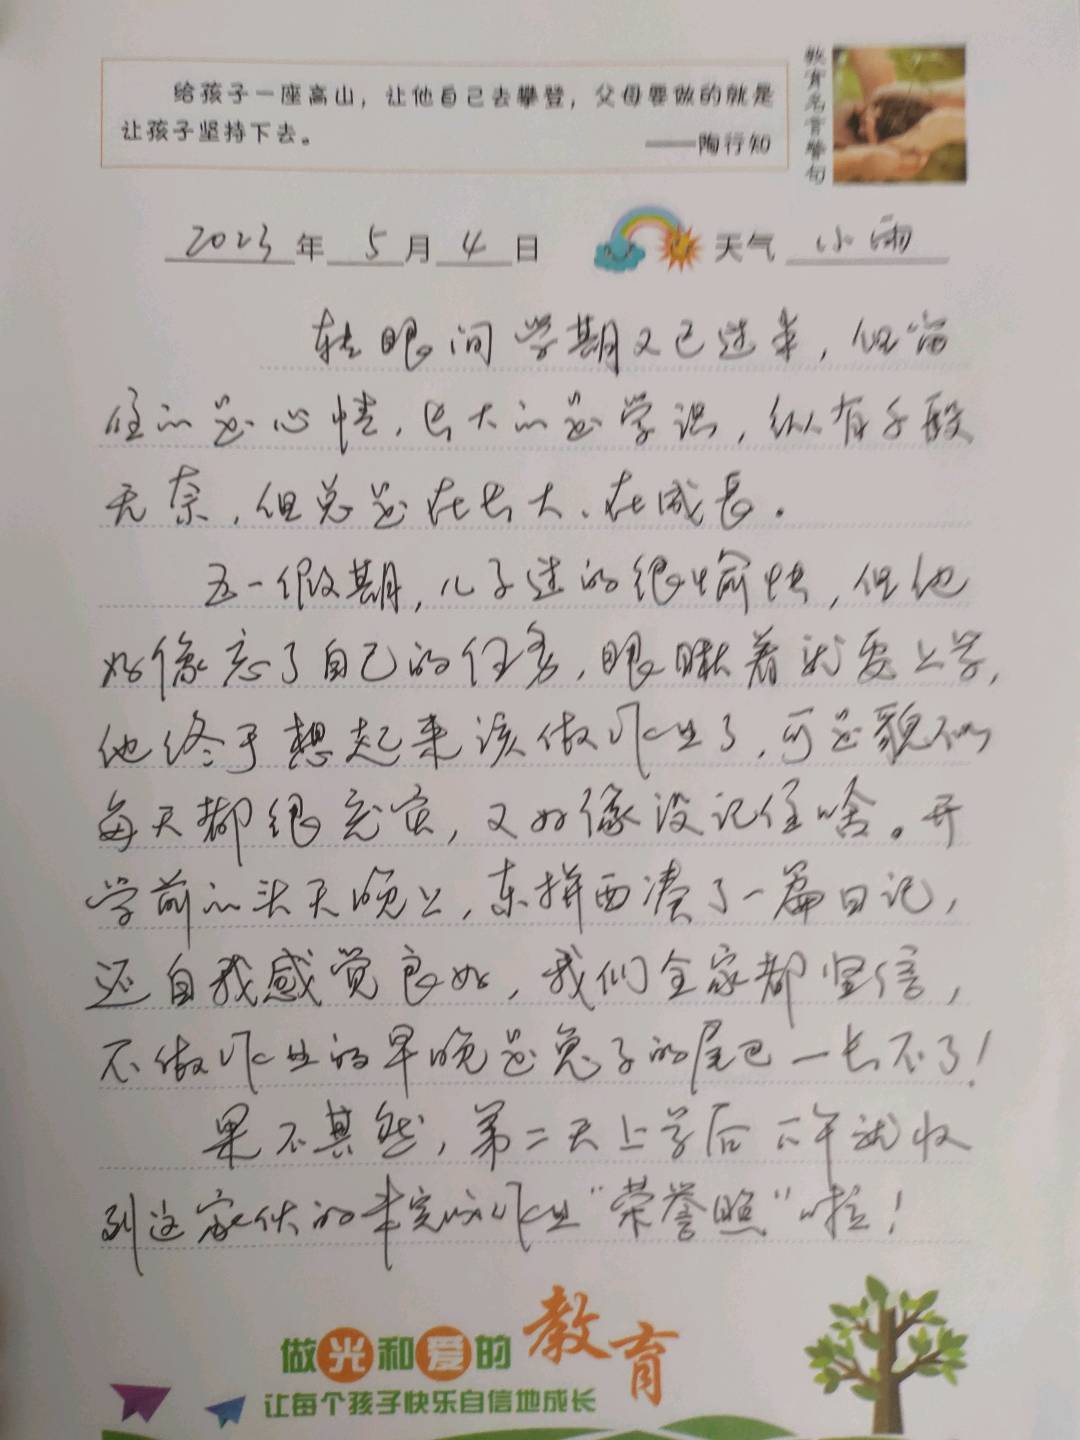 给孩子一座高山，让他自己去攀登，父母要做的就是
让孩子坚持下去。
——陶行知
教育名言警句
2023年 5月 4日 天气 小雨
转眼间学期又已过半，但留
住的是心情，长大的是学识，纵有千般
无奈，但总是在长大、在成长。
五一假期，儿子过的很愉快，但他
好像忘了自己的任务，眼瞅着就要上学，
他终于想起来该做作业了，可是貌似
每天都很充实，又好像没记住啥。开
学前的头天晚上，东拼西凑了一篇日记，
还自我感觉良好，我们全家都坚信，
不做作业的早晚是兔子的尾巴—长不了！
果不其然，第二天上学后下午就收
到这家伙的未完成作业“荣誉照”啦！
做光和爱的教育
让每个孩子快乐自信地成长